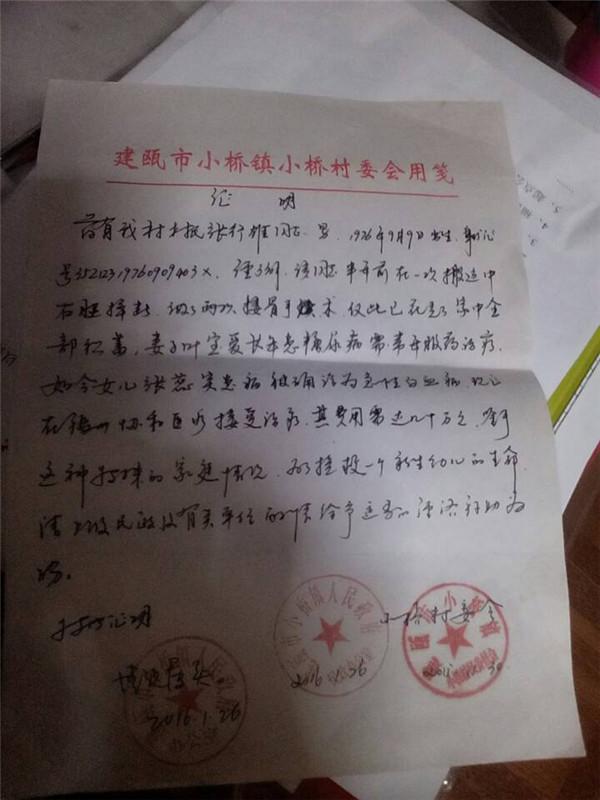 建瓯市小桥镇小桥村委会用笺
证 明
兹有我村村民张行雄同志 男,1976年9月9日出生,身份证
号35212319760909403X,该同志半年前在一次搬运中
右腿摔断,做了两次接骨手术,仅此已花去了家中全
部积蓄,妻子叶宝爱长年患糖尿病需常年服药治疗,
如今女儿张蕊突患病被确诊为急性白血病,现正
在福州协和医院接受治疗,其费用需达几十万元,鉴于
这种特殊的家庭情况,为挽救一个新生幼儿的生命,
请上级民政及有关单位酌情给予适当的经济补助为
盼。
特此证明
小桥村委会
情况属实
2016.1.26
2016.1.26